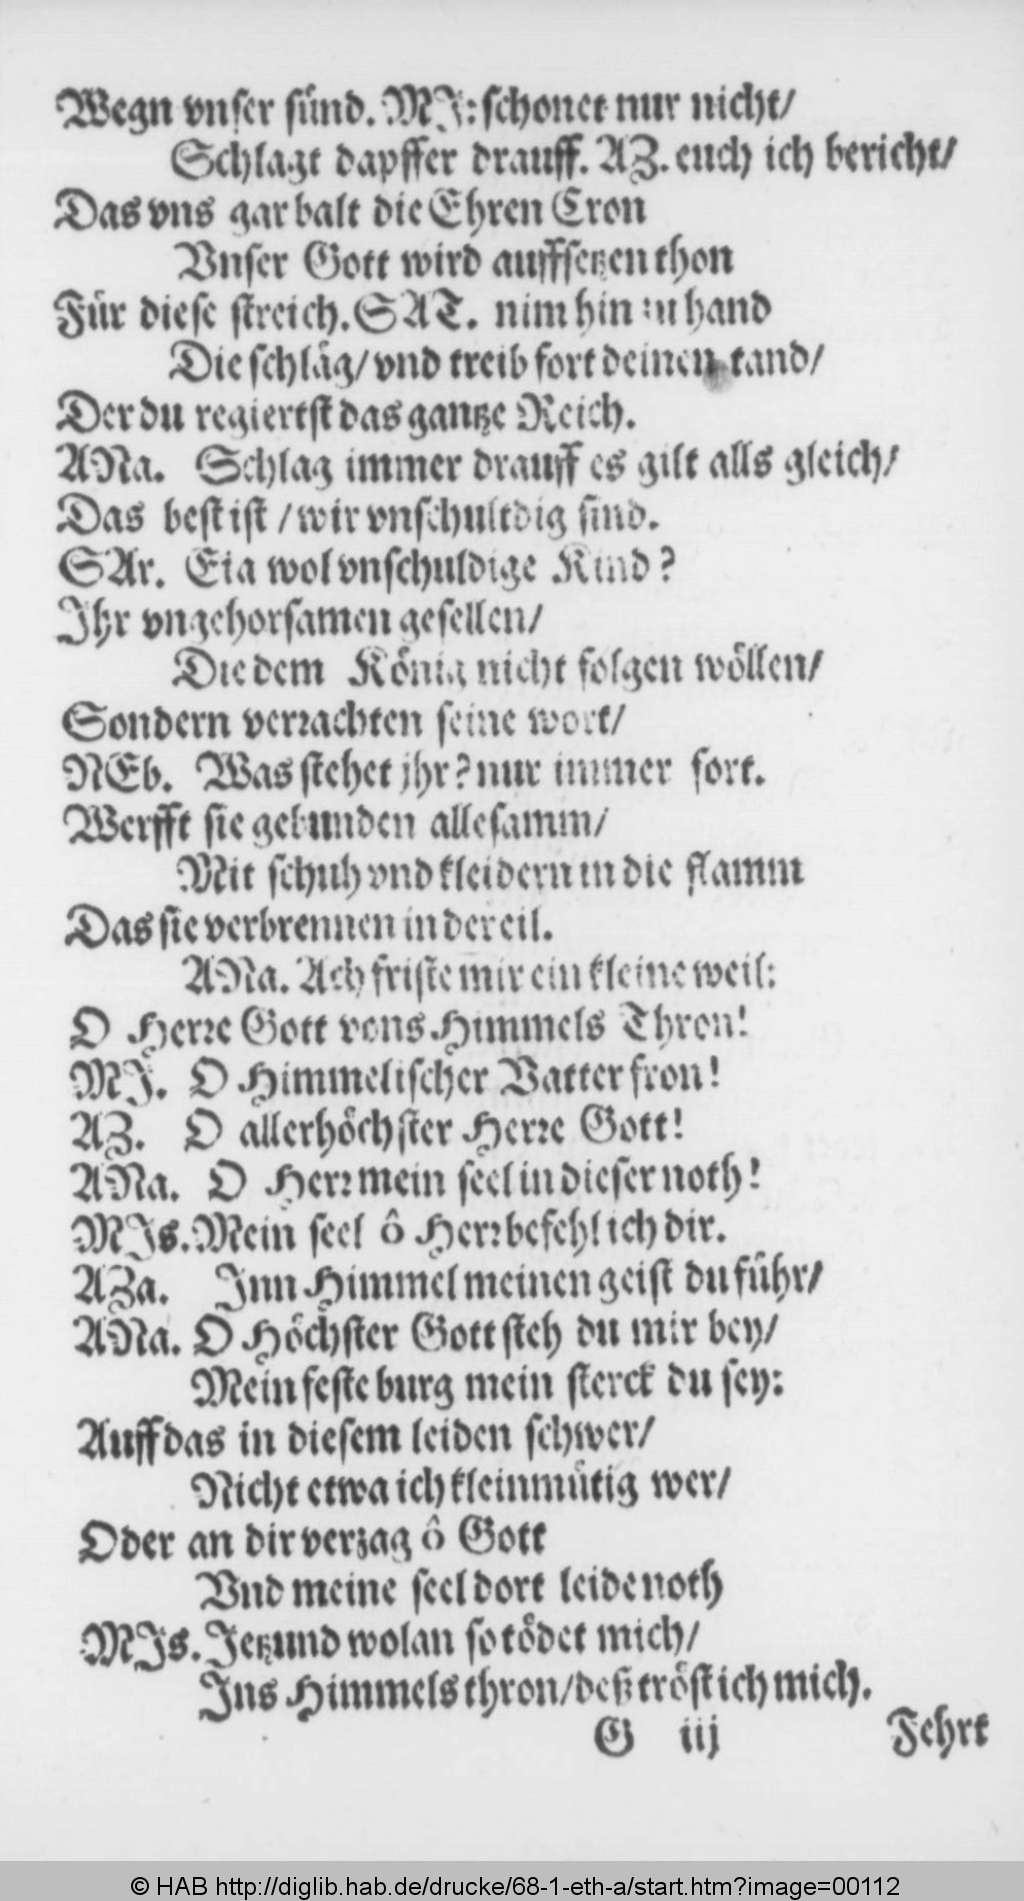 Wegn vnser sünd. MJ: schonet nur nicht/
Schlagt dapffer drauff. AZ. euch ich bericht/
Das vns gar balt die Ehren Cron
Vnser Gott wird auffsetzen thon
Für diese streich. SAT. nim hin zu hand
Die schläg/ vnd treib fort deinen tand/
Der du regiertst das gantze Reich.
ANa. Schlag immer drauff es gilt alls gleich/
Das best ist / wir vnschultdig sind.
SAr. Eia wol vnschuldige Kind?
Jhr vngehorsamen gesellen/
Die dem König nicht folgen wöllen/
Sondern verrachten seine wort/
NEb. Was stehet jhr? nur immer fort.
Werfft sie gebunden allesamm/
Mit schuh vnd kleidern in die flamm
Das sie verbrennen in der eil.
ANa. Ach friste mir ein kleine weil:
O Herre Gott vons Himmels Thron!
MJ. O Himmelischer Vatter fron!
AZ. O allerhöchster Herre Gott!
ANa. O Herr mein seel in dieser noth!
MJs. Mein seel ô Herr befehl ich dir.
AZa. Jnn Himmel meinen geist du führ/
ANa. O Höchster Gott steh du mir bey/
Mein feste burg mein sterck du sey:
Auff das in diesem leiden schwer/
Nicht etwa ich kleinmütig wer/
Oder an dir verzag ô Gott
Vnd meine seel dort leide noth
MJs. Jetzund wolan so tödet mich/
Jns Himmels thron/ deß tröst ich mich.
G iij Fehrt
© HAB http://diglib.hab.de/drucke/68-1-eth-a/start.htm?image=00112